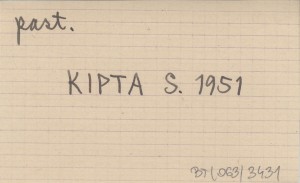 past.
KIPTA S. 1951
BT(.063)3431